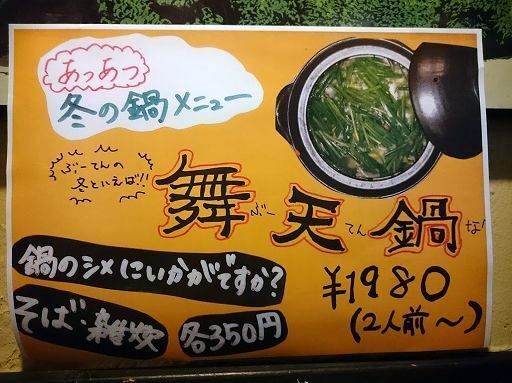 あっあつ
冬の鍋メニュー
ぶーてんの
冬といえば!!
舞天鍋
ぶー てん な
鍋のシメにいかがですか?
¥1980
(2人前〜)
そば・雑炊 各350円